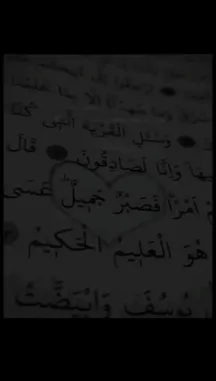 وَمَا شَهِدْنَا إِلَّا بِمَا عَلِمْنَا
وَسْئَلِ الْقَرْيَةَ الَّتِي كُنَّا
فِيهَا وَإِنَّا لَصَادِقُونَ قَالَ
أَمْرًا فَصَبْرٌ جَمِيلٌ عَسَى
هُوَ الْعَلِيمُ الْحَكِيمُ
يُوسُفَ وَابْيَضَّتْ